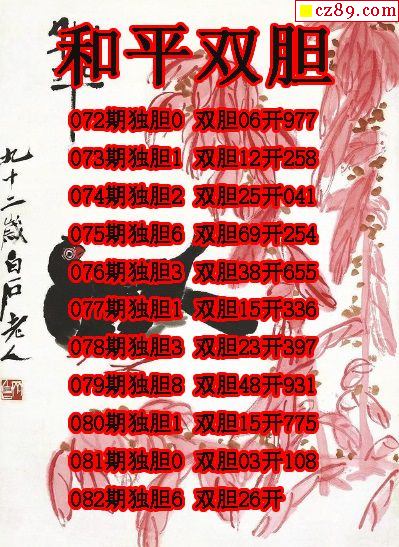 cz89.com
和平双胆
072期独胆0 双胆06开977
073期独胆1 双胆12开258
074期独胆2 双胆25开041
075期独胆6 双胆69开254
076期独胆3 双胆38开655
077期独胆1 双胆15开336
078期独胆3 双胆23开397
079期独胆8 双胆48开931
080期独胆1 双胆15开775
081期独胆0 双胆03开108
082期独胆6 双胆26开
九十二岁白石老人